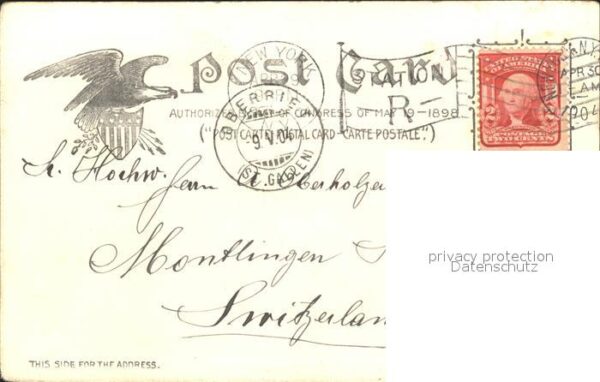 Post Card
AUTHORIZED BY ACT OF CONGRESS OF MAY 19-1898
("POST CARTE POSTAL CARD - CARTE POSTALE")
NEW YORK
STATION
R
APR 30
AM
1904
UNITED STATES OF AMERICA
POSTAGE
TWO CENTS
OBERRIET
9 V 04
(ST. GALLEN)
Hochw. Herrn
Montlingen
Switzerlan
privacy protection
Datenschutz
THIS SIDE FOR THE ADDRESS.